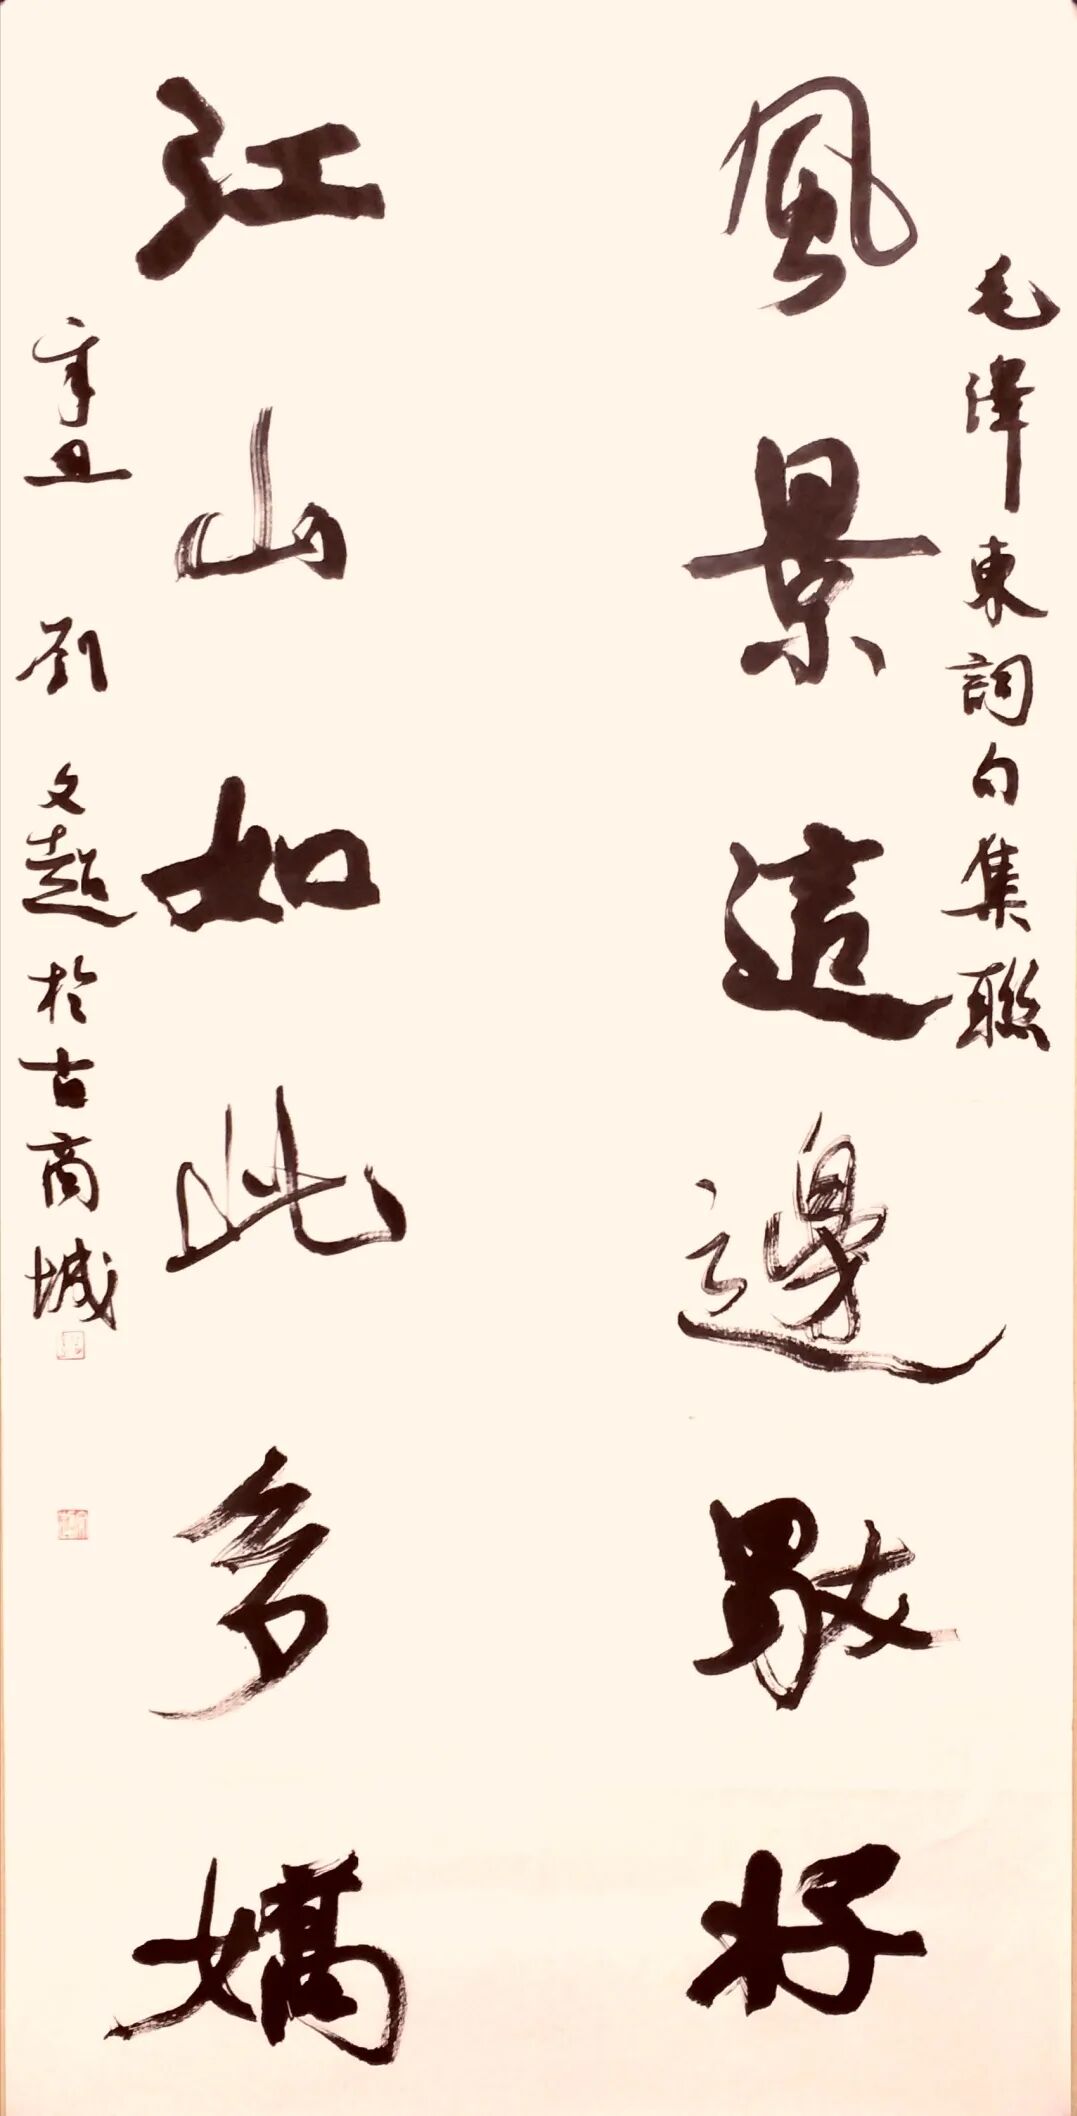 毛澤東詞句集聯
風景這邊獨好
江山如此多嬌
辛丑 劉文超於古商城